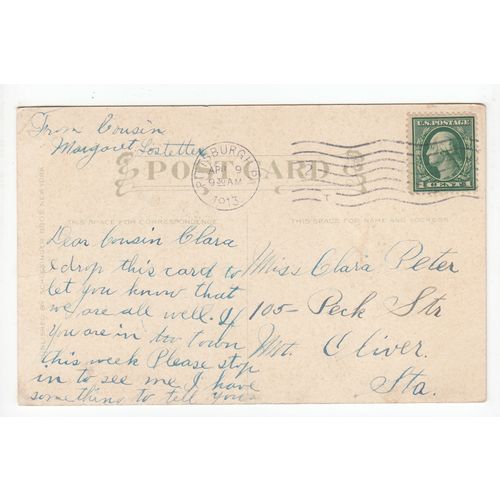 From Cousin
Margaret Lostetter
POST CARD
PITTSBURGH, PA.
APR 9
9 30 AM
1913
U.S. POSTAGE
1 CENT 1
THIS SPACE FOR CORRESPONDENCE
THIS SPACE FOR NAME AND ADDRESS
Dear Cousin Clara
I drop this card to
let you know that
we are all well. If
you are in too town
this week Please stop
in to see me I have
something to tell you
Miss Clara Peter
105- Peck Str
Mt. Oliver.
Sta.